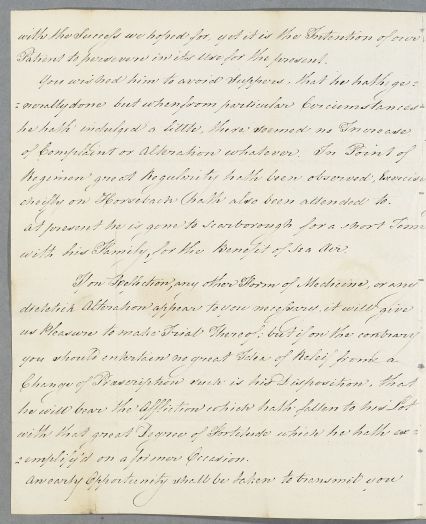 with the Success we hoped for, yet it is the Intention of our
Patient to persevere in its Use for the present.
You wished him to avoid Suppers; that he hath ge-
=nerally done but when from particular Circumstances
he hath indulged a little, there seemed no Increase
of Complaint or Alteration whatever. In Point of
Regimen great Regularity hath been observed, Exercise
chiefly on Horseback hath also been attended to.
At present he is gone to Scarborough for a short Term
with his Family, for the Benefit of Sea Air.
If on Reflection, any other Form of Medicine, or any
dietetick Alteration appear to you necessary, it will give
us Pleasure to make Trial Thereof; but if on the contrary
you should entertain no great Idea of Relief from a
Change of Prescription such is his Disposition, that
he will bear the Affliction which hath fallen to his Lot
with that great Degree of Fortitude which he hath ex-
=emplify'd on a former Occasion.
An early Opportunity shall be taken to transmit you